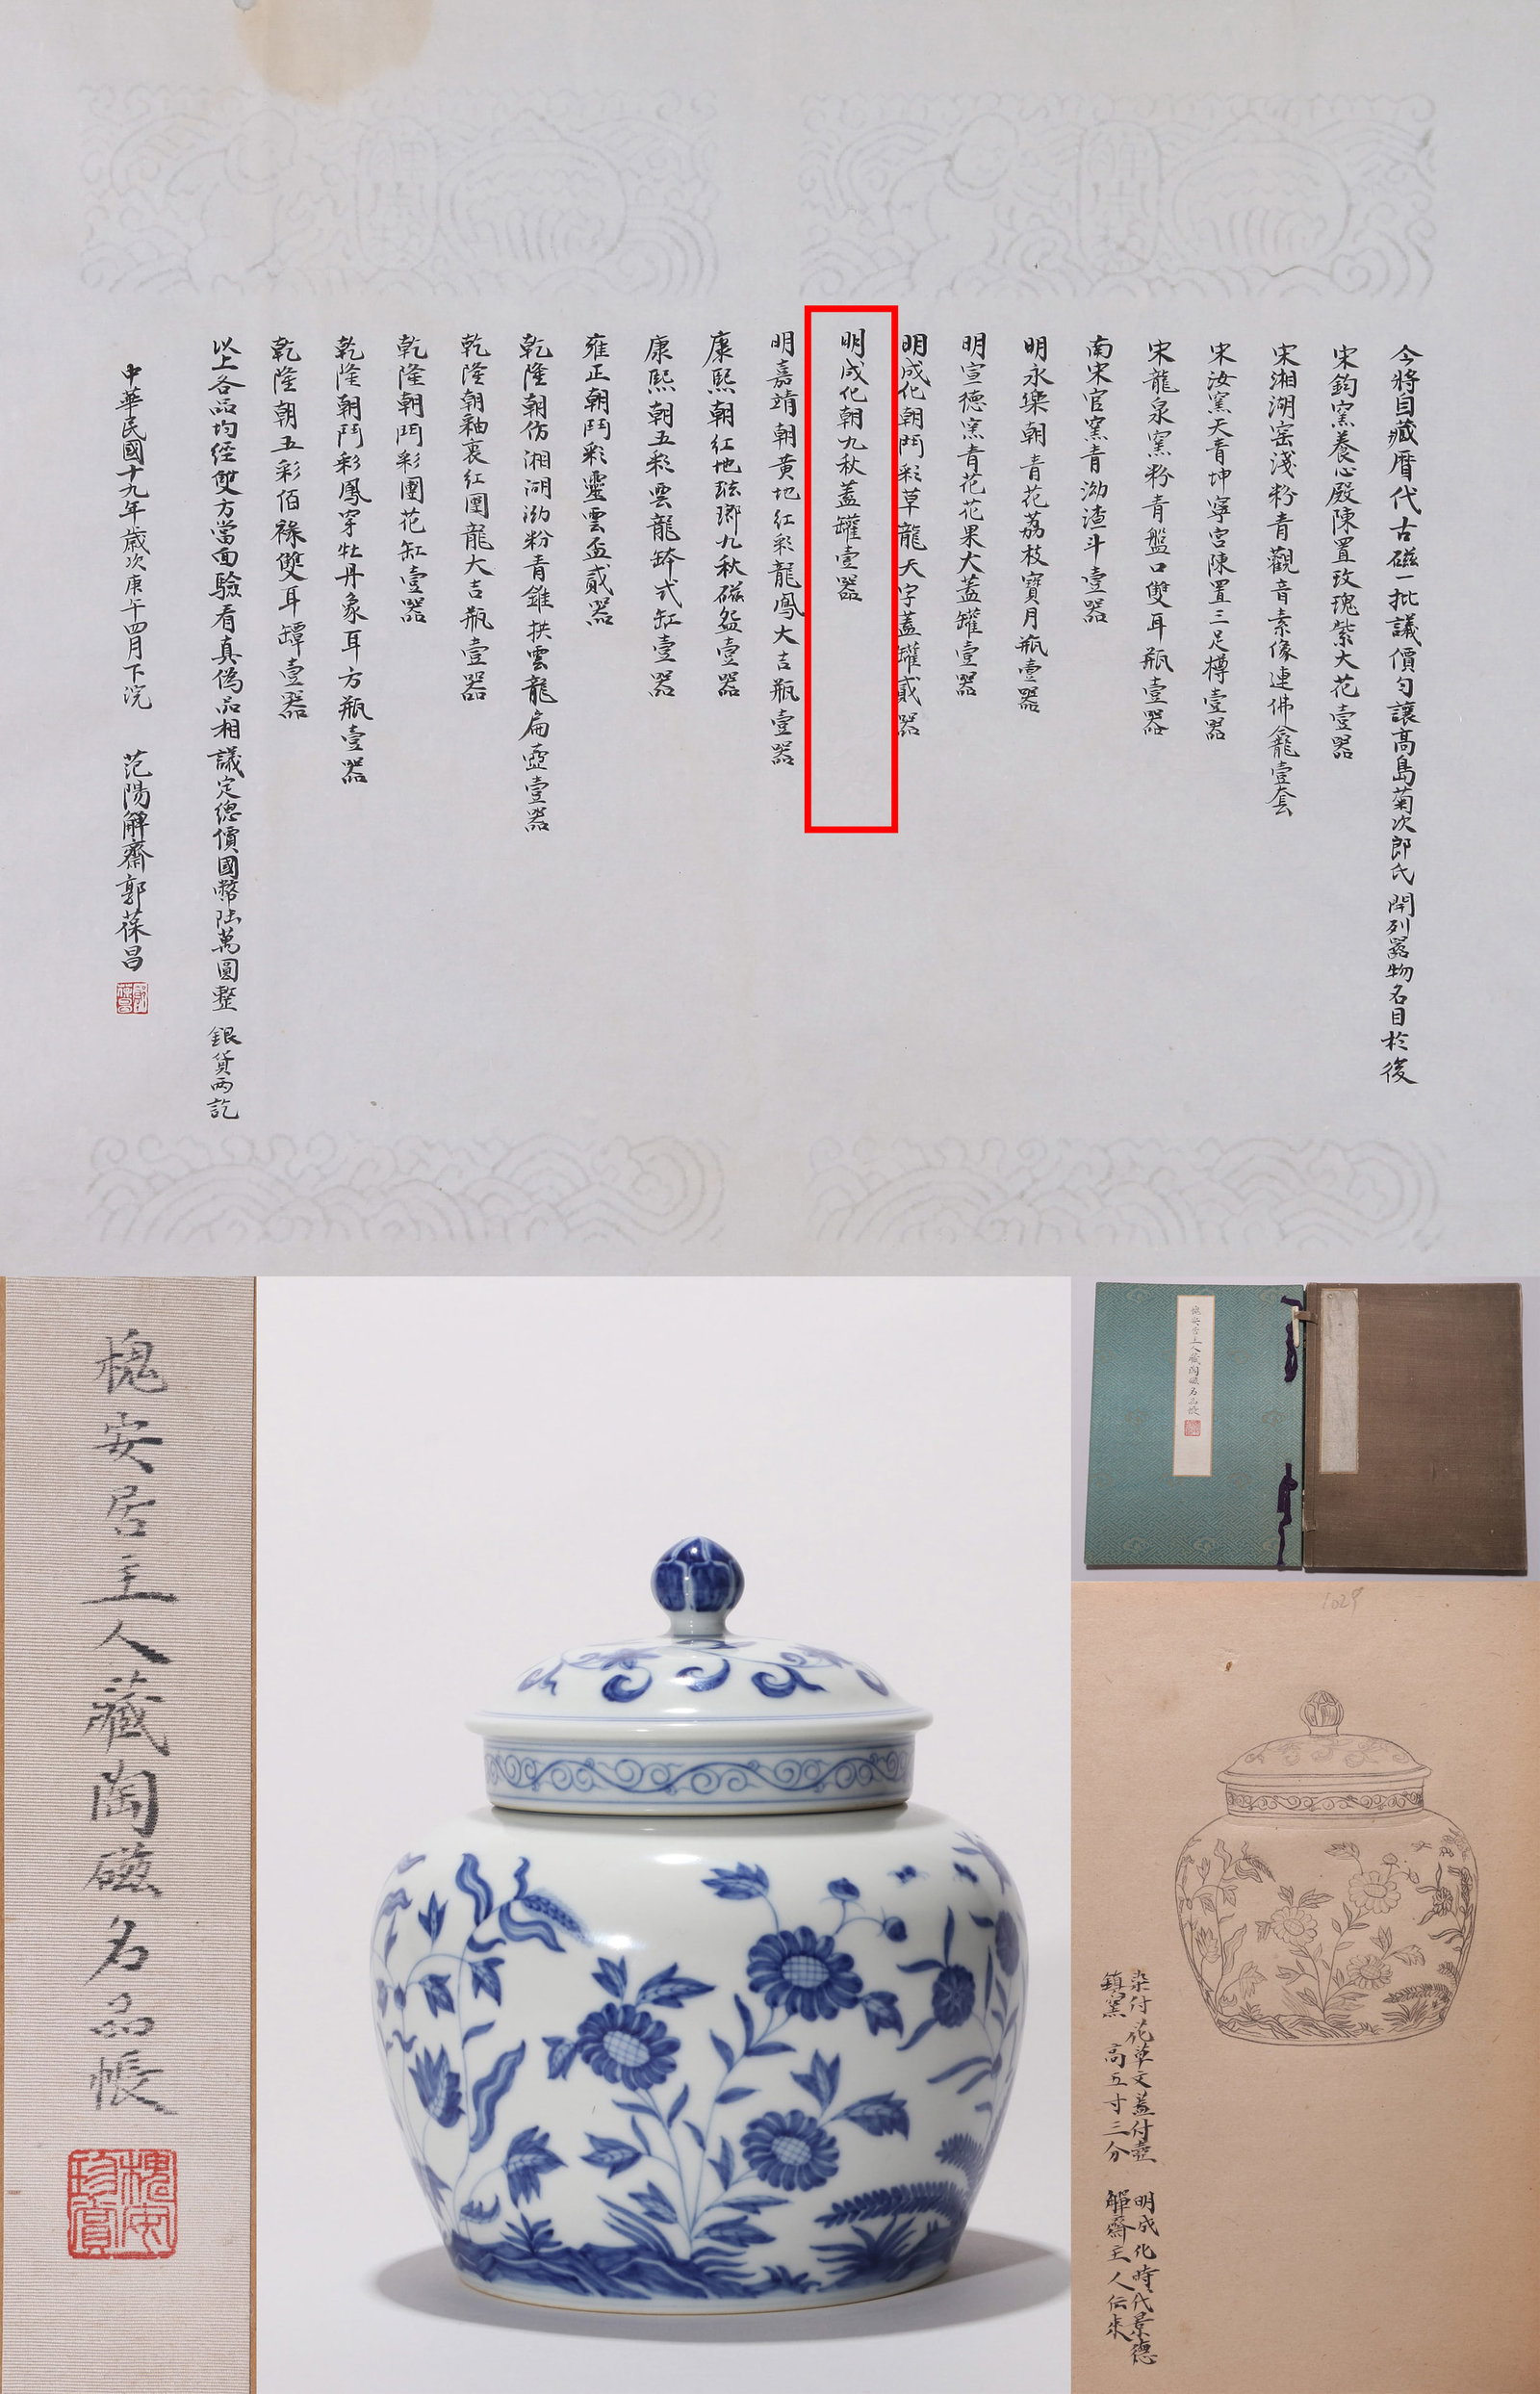 今將自藏曆代古磁一批議價勻讓高島菊次郎氏 開列器物名目於後
宋鈞窯養心殿陳置玫瑰紫大花壹器
宋湘湖窑淺粉青觀音素像連佛龕壹套
宋汝窯天青坤寧宮陳置三足樽壹器
宋龍泉窯粉青盤口雙耳瓶壹器
南宋官窯青泑渣斗壹器
明永樂朝青花荔枝寶月瓶壹器
明宣德窯青花花果大蓋罐壹器
明成化朝鬥彩草龍天字蓋罐貳器
明成化朝九秋蓋罐壹器
明嘉靖朝黄地紅彩龍鳳大吉瓶壹器
康熙朝紅地琺瑯九秋磁盌壹器
康熙朝五彩雲龍缽式缸壹器
雍正朝鬥彩靈雲盃貳器
乾隆朝仿湘湖泑粉青錐拱雲龍扁壺壹器
乾隆朝釉裏紅團龍大吉瓶壹器
乾隆朝鬥彩團花缸壹器
乾隆朝鬥彩鳳穿牡丹象耳方瓶壹器
乾隆朝五彩佰祿雙耳罈壹器
以上各品均經雙方當面驗看真偽品相議定總價國幣陆萬圓整 銀貨兩訖
中華民國十九年歲次庚午四月下浣 范陽觶齋郭葆昌
槐安居主人藏陶磁名品帳
槐安珍賞
槐安居主人藏陶磁名品帳
1029
染付花草文蓋付壺 明成化時代景德
鎮窯 高五寸三分 觶齋主人伝来